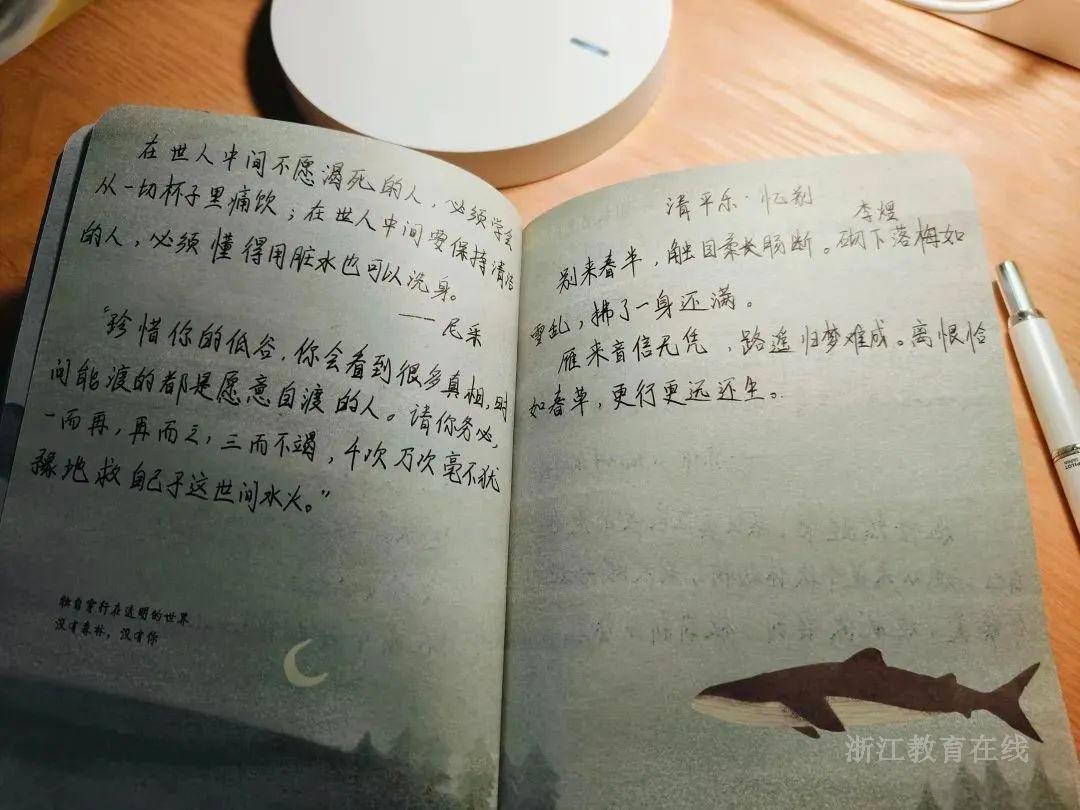 在世人中间不愿渴死的人，必须学会
从一切杯子里痛饮；在世人中间要保持清洁
的人，必须懂得用脏水也可以洗身。
——尼采
“珍惜你的低谷，你会看到很多真相，时
间能渡的都是愿意自渡的人。请你务必，
一而再，再而三，三而不竭，千次万次毫不犹
豫地救自己于这世间水火。”
独自穿行在透明的世界
没有森林，没有你
清平乐·忆别
李煜
别来春半，触目柔长肠断。砌下落梅如
雪乱，拂了一身还满。
雁来音信无凭，路遥归梦难成。离恨恰
如春草，更行更远还生。
PILOT
浙江教育在线